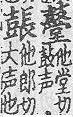 鼞他堂切鼓声
他郎切大声他